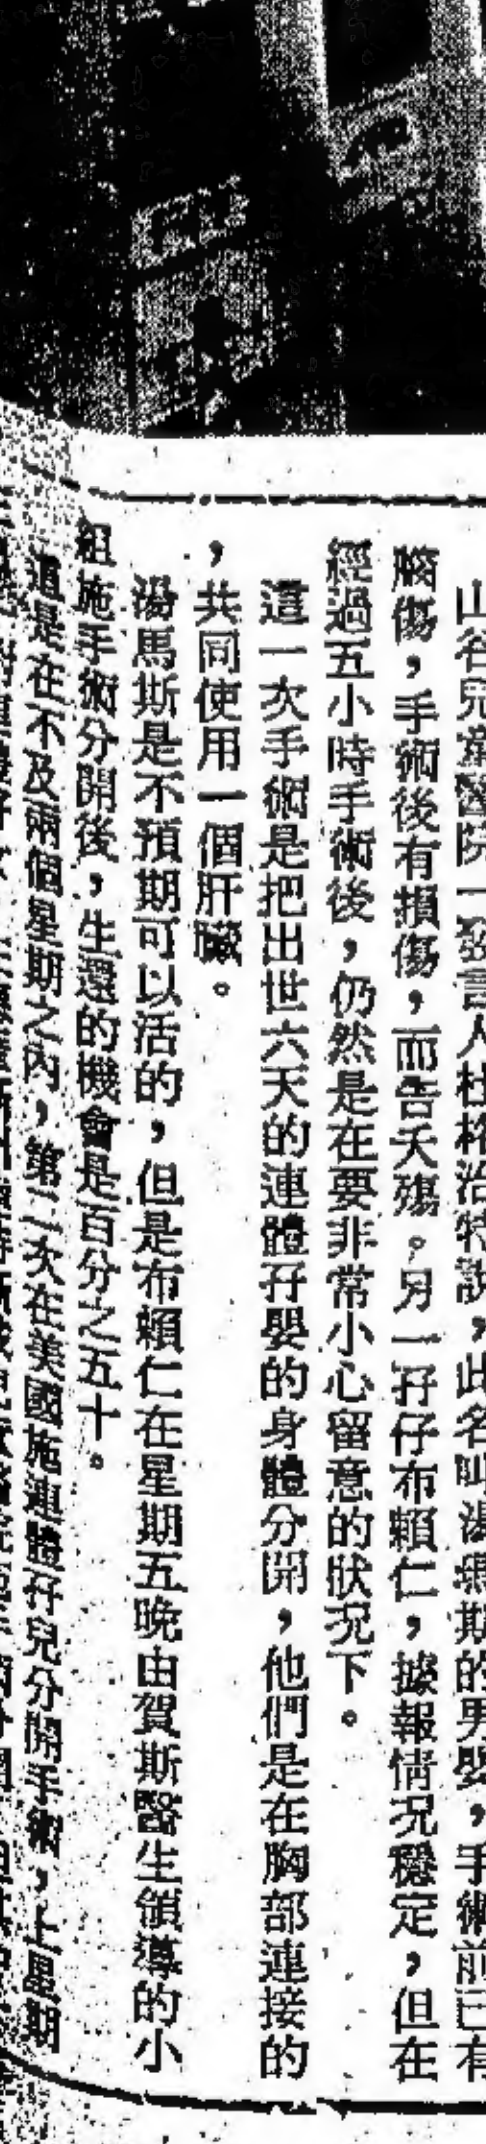 山谷兒童醫院一發言人杜格治特說，此名叫湯瑪斯的男嬰，手術前已有
腦傷，手術後有損傷，而告夭殤。另一孖仔布賴仁，據報情況穩定，但在
經過五小時手術後，仍然是在要非常小心留意的狀況下。
這一次手術是把出世六天的連體孖嬰的身體分開，他們是在胸部連接的
，共同使用一個肝臟。
湯馬斯是不預期可以活的，但是布賴仁在星期五晚由賀斯醫生領導的小
組施手術分開後，生還的機會是百分之五十。
這是在不及兩個星期之內，第二次在美國施連體孖兒分開手術，上星期